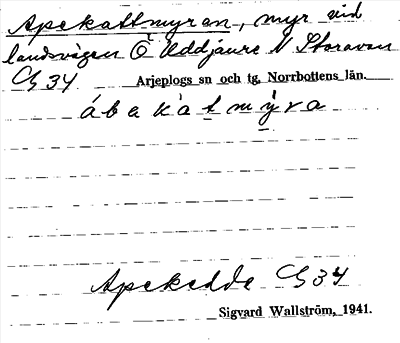 Apekattmyran, myr vid
landsvägen Ö Uddjaure N Storavan
Cg 34 Arjeplogs sn och tg, Norrbottens län.
ábakàtmỳra
Apekedde Cg 34
Sigvard Wallström, 1941.